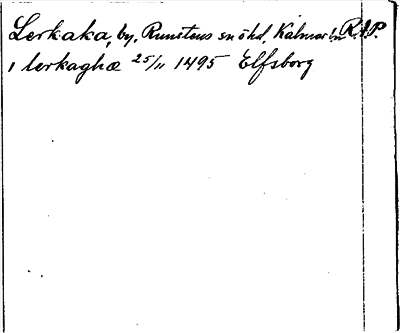 Lerkaka, by, Runstens sn ökd, Kalmar län R.A.P.
i lerkaghæ 25/11 1495 Elfsborg